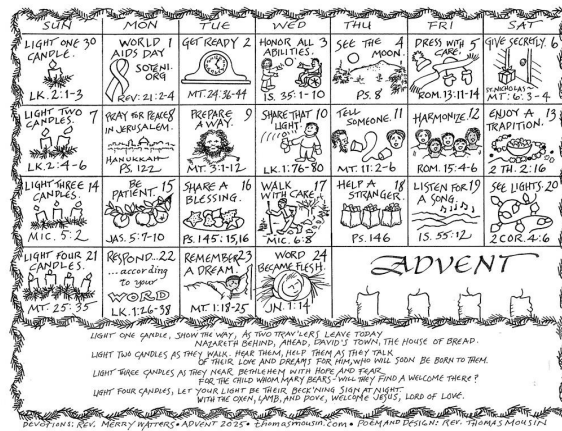 SUN MON TUE WED THU FRI SAT
LIGHT ONE 30
CANDLE.
LK. 2:1-3
WORLD 1
AIDS DAY
SOTENI.
ORG
REV: 21:2-4
GET READY 2
MT. 24:36-44
HONOR ALL 3
ABILITIES.
IS. 35:1-10
SEE THE 4
MOON.
PS. 8
DRESS WITH 5
CARE.
ROM. 13:11-14
GIVE SECRETLY. 6
ST. NICHOLAS
MT: 6:3-4
LIGHT TWO 7
CANDLES.
LK. 2:4-6
PRAY FOR PEACE 8
IN JERUSALEM.
HANUKKAH
PS. 122
PREPARE 9
A WAY.
MT. 3:1-12
SHARE THAT 10
LIGHT.
LK. 1:76-80
TELL 11
SOMEONE.
MT. 11:2-6
HARMONIZE. 12
ROM. 15:4-6
ENJOY A 13
TRADITION.
2 TH. 2:16
LIGHT THREE 14
CANDLES.
MIC. 5:2
BE 15
PATIENT.
JAS. 5:7-10
SHARE A 16
BLESSING.
PS. 145:15,16
WALK 17
WITH CARE.
MIC. 6:8
HELP A 18
STRANGER.
PS. 146
LISTEN FOR 19
A SONG.
IS. 55:12
SEE LIGHTS. 20
2 COR. 4:6
LIGHT FOUR 21
CANDLES.
MT. 25:35
RESPOND... 22
...according
to your
WORD
LK. 1:26-38
REMEMBER 23
A DREAM.
MT. 1:18-25
WORD 24
BECAME FLESH.
JN. 1:14
ADVENT
LIGHT ONE CANDLE, SHOW THE WAY, AS TWO TRAV'LERS LEAVE TODAY
NAZARETH BEHIND, AHEAD, DAVID'S TOWN, THE HOUSE OF BREAD.
LIGHT TWO CANDLES AS THEY WALK. HEAR THEM, HELP THEM AS THEY TALK
OF THEIR LOVE AND DREAMS FOR HIM, WHO WILL SOON BE BORN TO THEM.
LIGHT THREE CANDLES AS THEY NEAR BETHLEHEM WITH HOPE AND FEAR
FOR THE CHILD WHOM MARY BEARS - WILL THEY FIND A WELCOME THERE?
LIGHT FOUR CANDLES, LET YOUR LIGHT BE THEIR BECK'NING SIGN AT NIGHT.
WITH THE OXEN, LAMB, AND DOVE, WELCOME JESUS, LORD OF LOVE.
DEVOTIONS: REV. MERRY WATTERS • ADVENT 2025 • thomasmousin.com • POEM AND DESIGN: REV. THOMAS MOUSIN